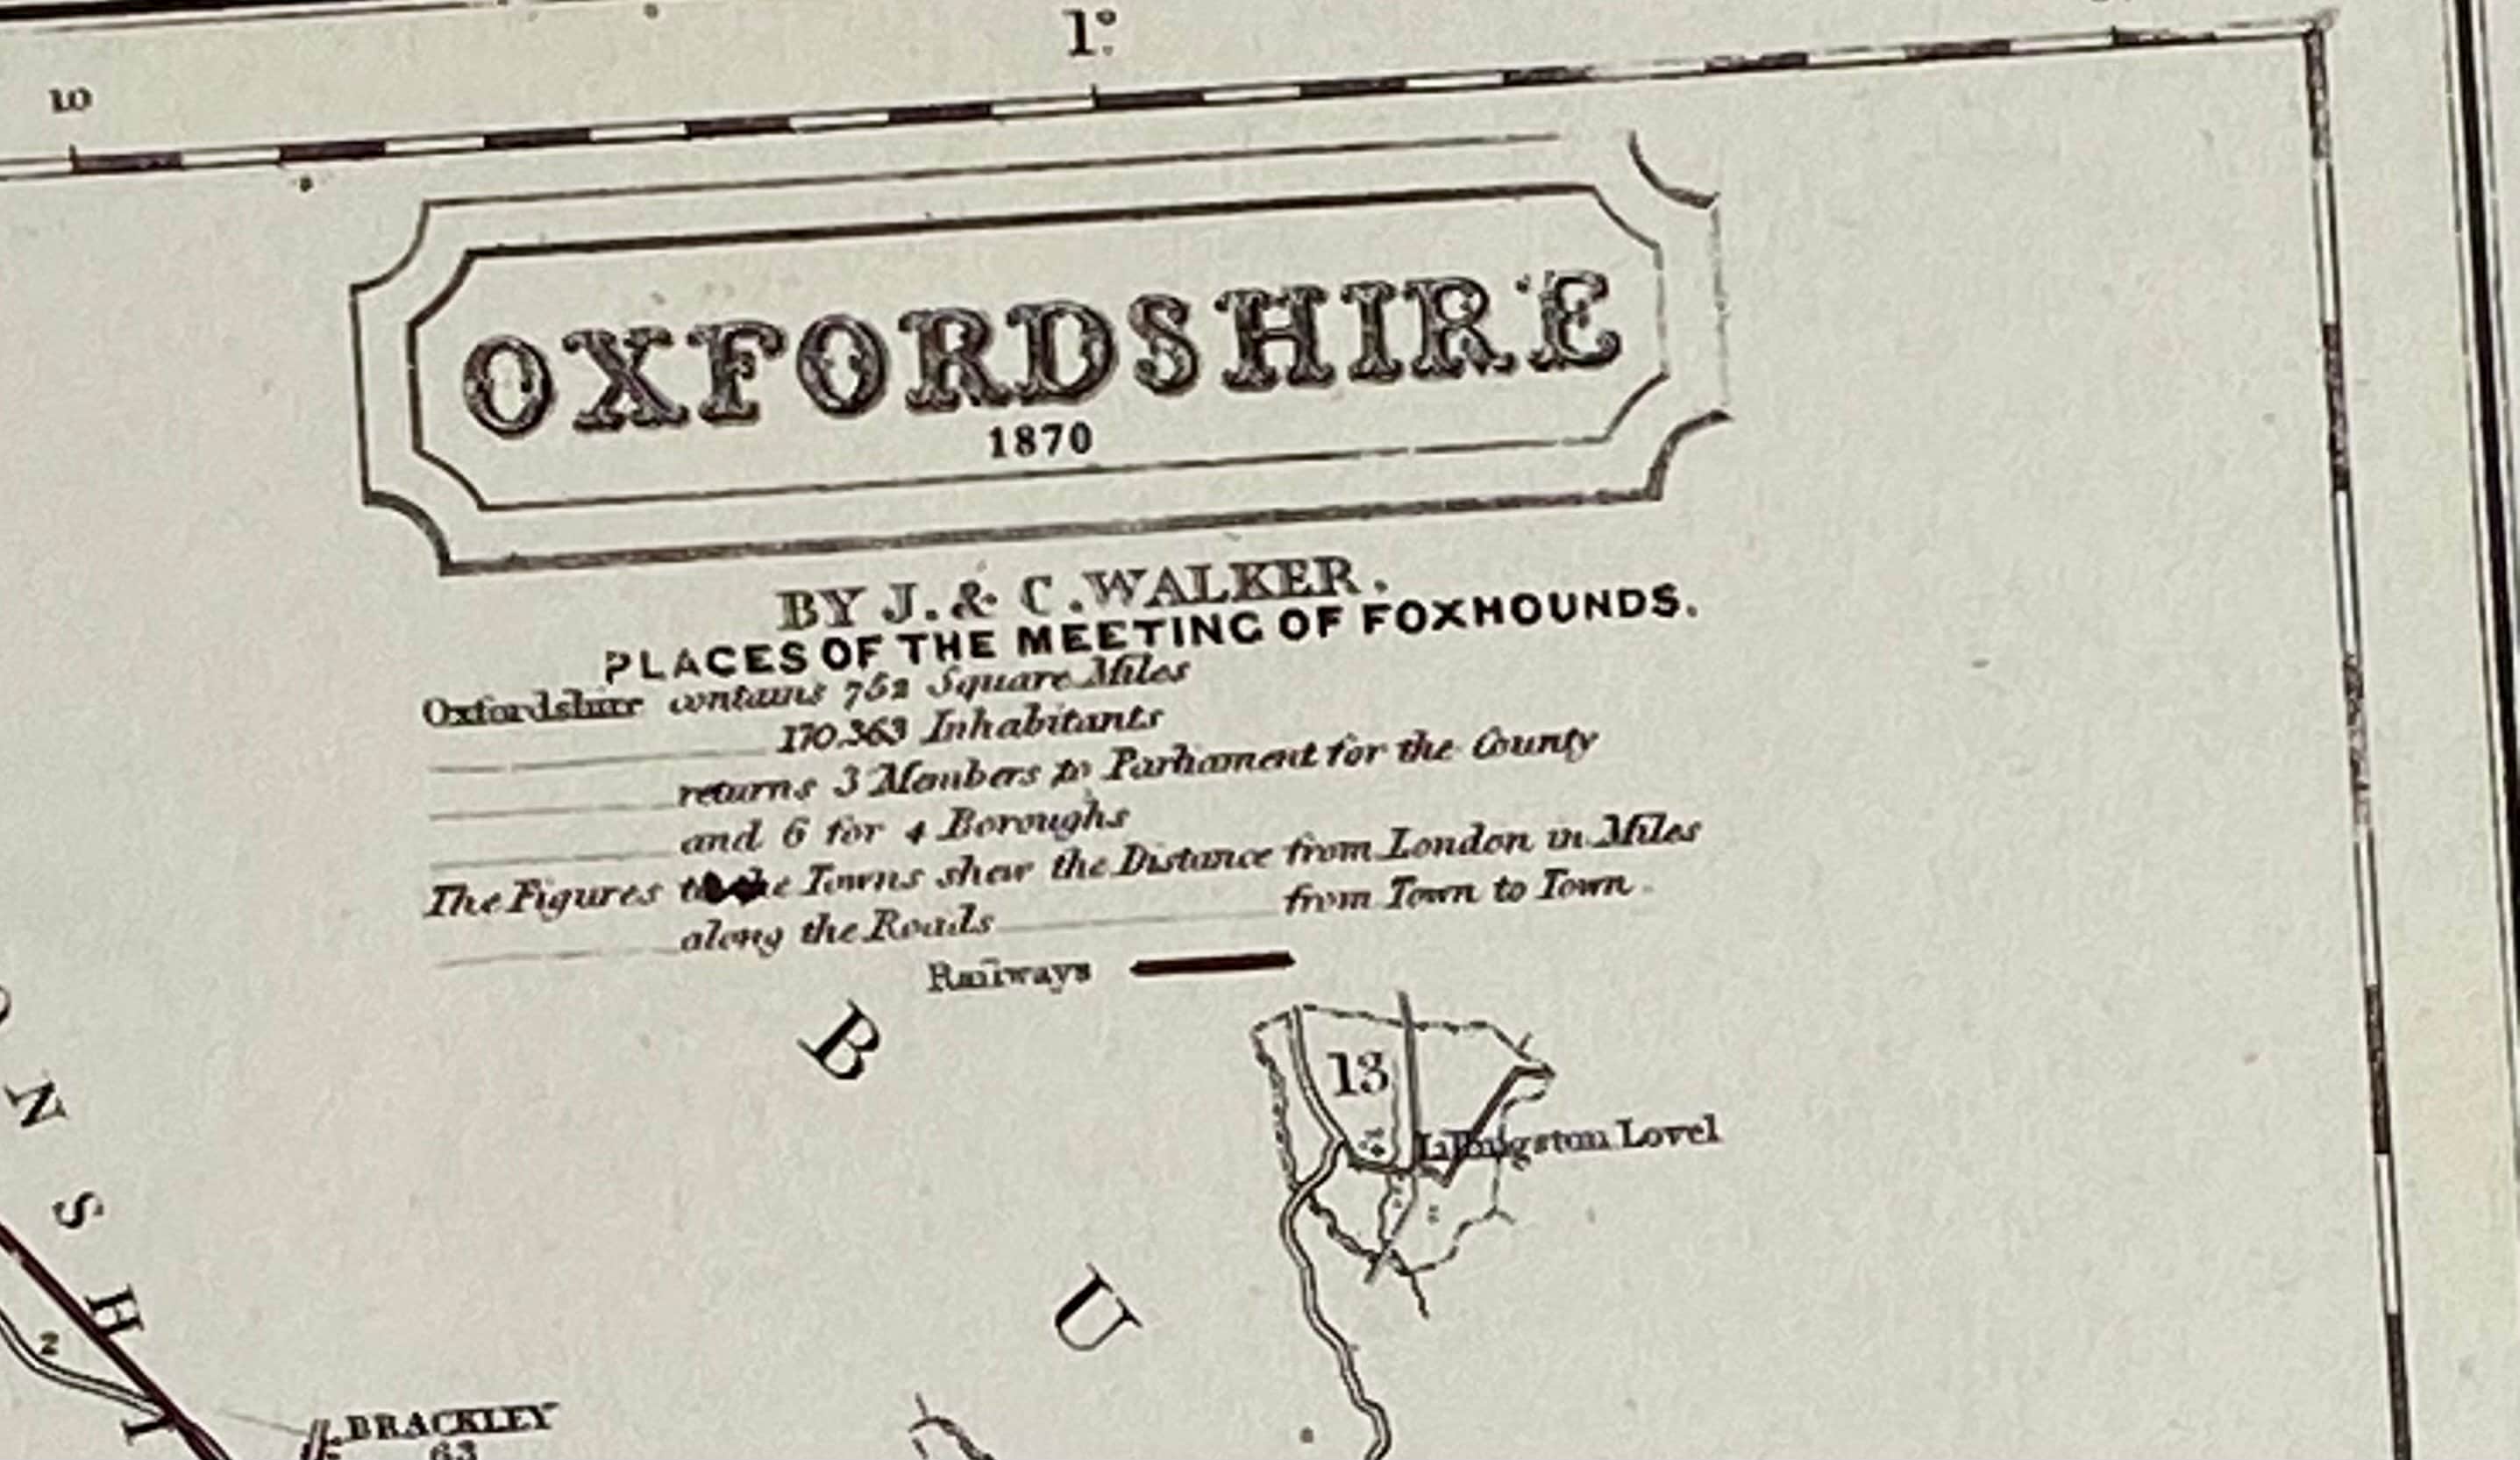 1°
10
OXFORDSHIRE
1870
BY J. & C. WALKER.
PLACES OF THE MEETING OF FOXHOUNDS.
Oxfordshire contains 752 Square Miles
170.363 Inhabitants
returns 3 Members to Parliament for the County
and 6 for 4 Boroughs
The Figures to the Towns shew the Distance from London in Miles
along the Roads from Town to Town
Railways
B
13
Lovel
N
S
U
H
2
I
BRACKLEY
63